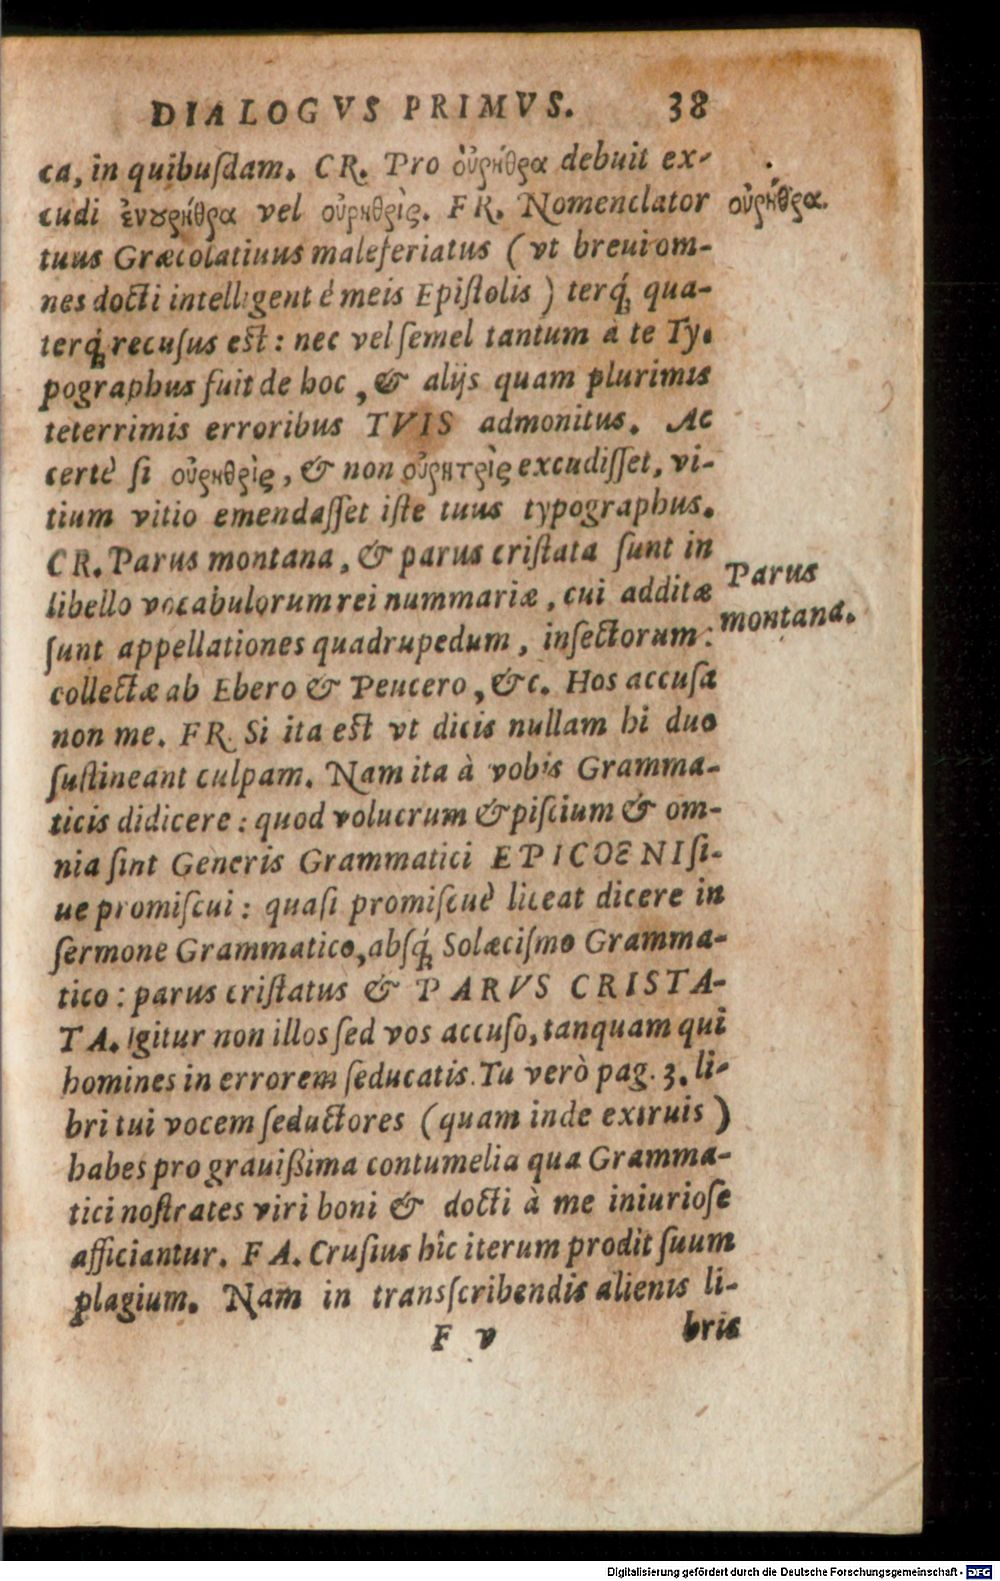 DIALOGVS PRIMVS. 38
ca, in quibusdam. CR. Pro οὐρήθρα debuit ex-
cudi ἐνουρήθρα vel οὐρηθρὶς. FR. Nomenclator
οὐρήθρα.
tuus Græcolatinus maleferiatus (vt breui om-
nes docti intelligent è meis Epistolis) terq́; qua-
terq́; recusus est: nec vel semel tantum à te Ty.
pographus fuit de hoc, & alijs quam plurimis
teterrimis erroribus TVIS admonitus. Ac
certè si οὐρηθρὶς, & non οὐρητρὶς excudisset, vi-
tium vitio emendasset iste tuus typographus.
CR. Parus montana, & parus cristata sunt in
Parus
libello vocabulorum rei nummariæ, cui additæ
montana.
sunt appellationes quadrupedum, insectorum:
collectæ ab Ebero & Peucero, &c. Hos accusa
non me. FR. Si ita est vt dicis nullam hi duo
sustineant culpam. Nam ita à vobis Gramma-
ticis didicere: quod volucrum & piscium & om-
nia sint Generis Grammatici EPICOENI si-
ue promiscui: quasi promiscuè liceat dicere in
sermone Grammatico, absq́; Solæcismo Gramma-
tico: parus cristatus & PARVS CRISTA-
TA. Igitur non illos sed vos accuso, tanquam qui
homines in errorem seducatis. Tu verò pag. 3. li-
bri tui vocem seductores (quam inde exstruis)
habes pro grauißima contumelia qua Gramma-
tici nostrates viri boni & docti à me iniuriose
afficiantur. FA. Crusius hîc iterum prodit suum
plagium. Nam in transscribendis alienis li-
F v bris
Digitalisierung gefördert durch die Deutsche Forschungsgemeinschaft - DFG